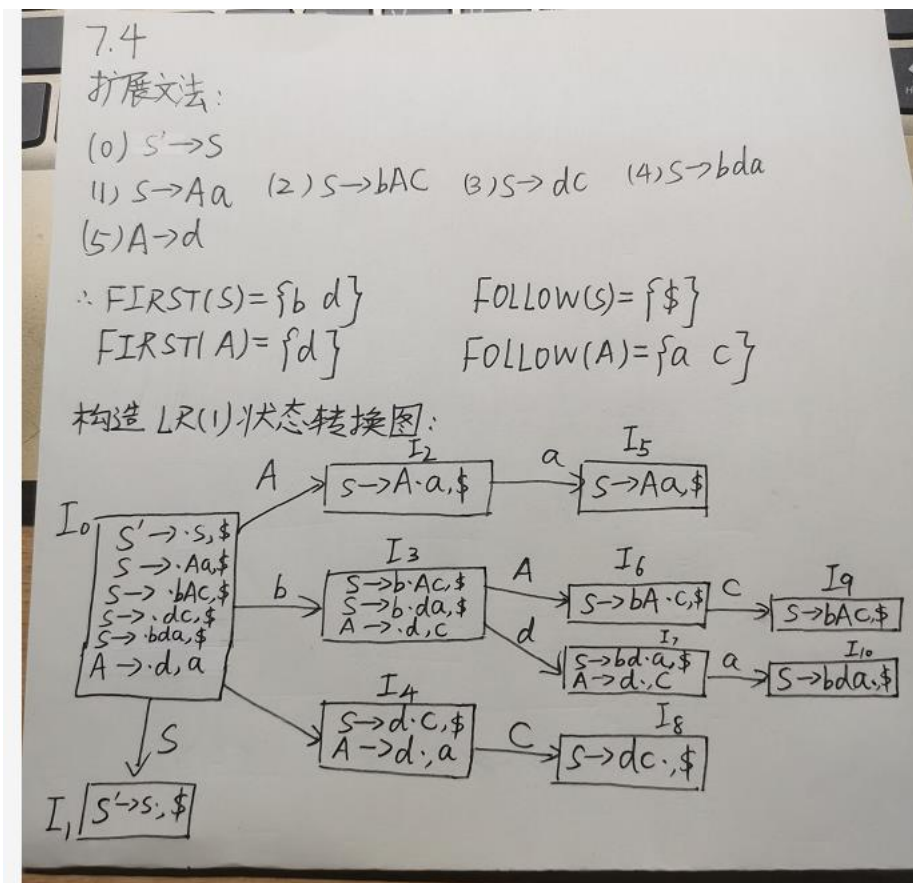 7.4
扩展文法:
(0) S'→S
(1) S→Aa (2) S→bAC (3) S→dC (4) S→bda
(5) A→d
∴ FIRST(S)={b d} FOLLOW(S)={$}
FIRST(A)={d} FOLLOW(A)={a c}
构造 LR(1)状态转换图:
I0
S'→·S,$
S→·Aa,$
S→·bAc,$
S→·dc,$
S→·bda,$
A→·d,a
A
I2
S→A·a,$
a
I5
S→Aa,$
b
I3
S→b·Ac,$
S→b·da,$
A→·d,c
A
I6
S→bA·c,$
C
I9
S→bAc,$
d
I7
S→bd·a,$
A→d·,C
a
I10
S→bda·,$
I4
S→d·C,$
A→d·,a
C
I8
S→dc·,$
S
I1
S'→S·,$